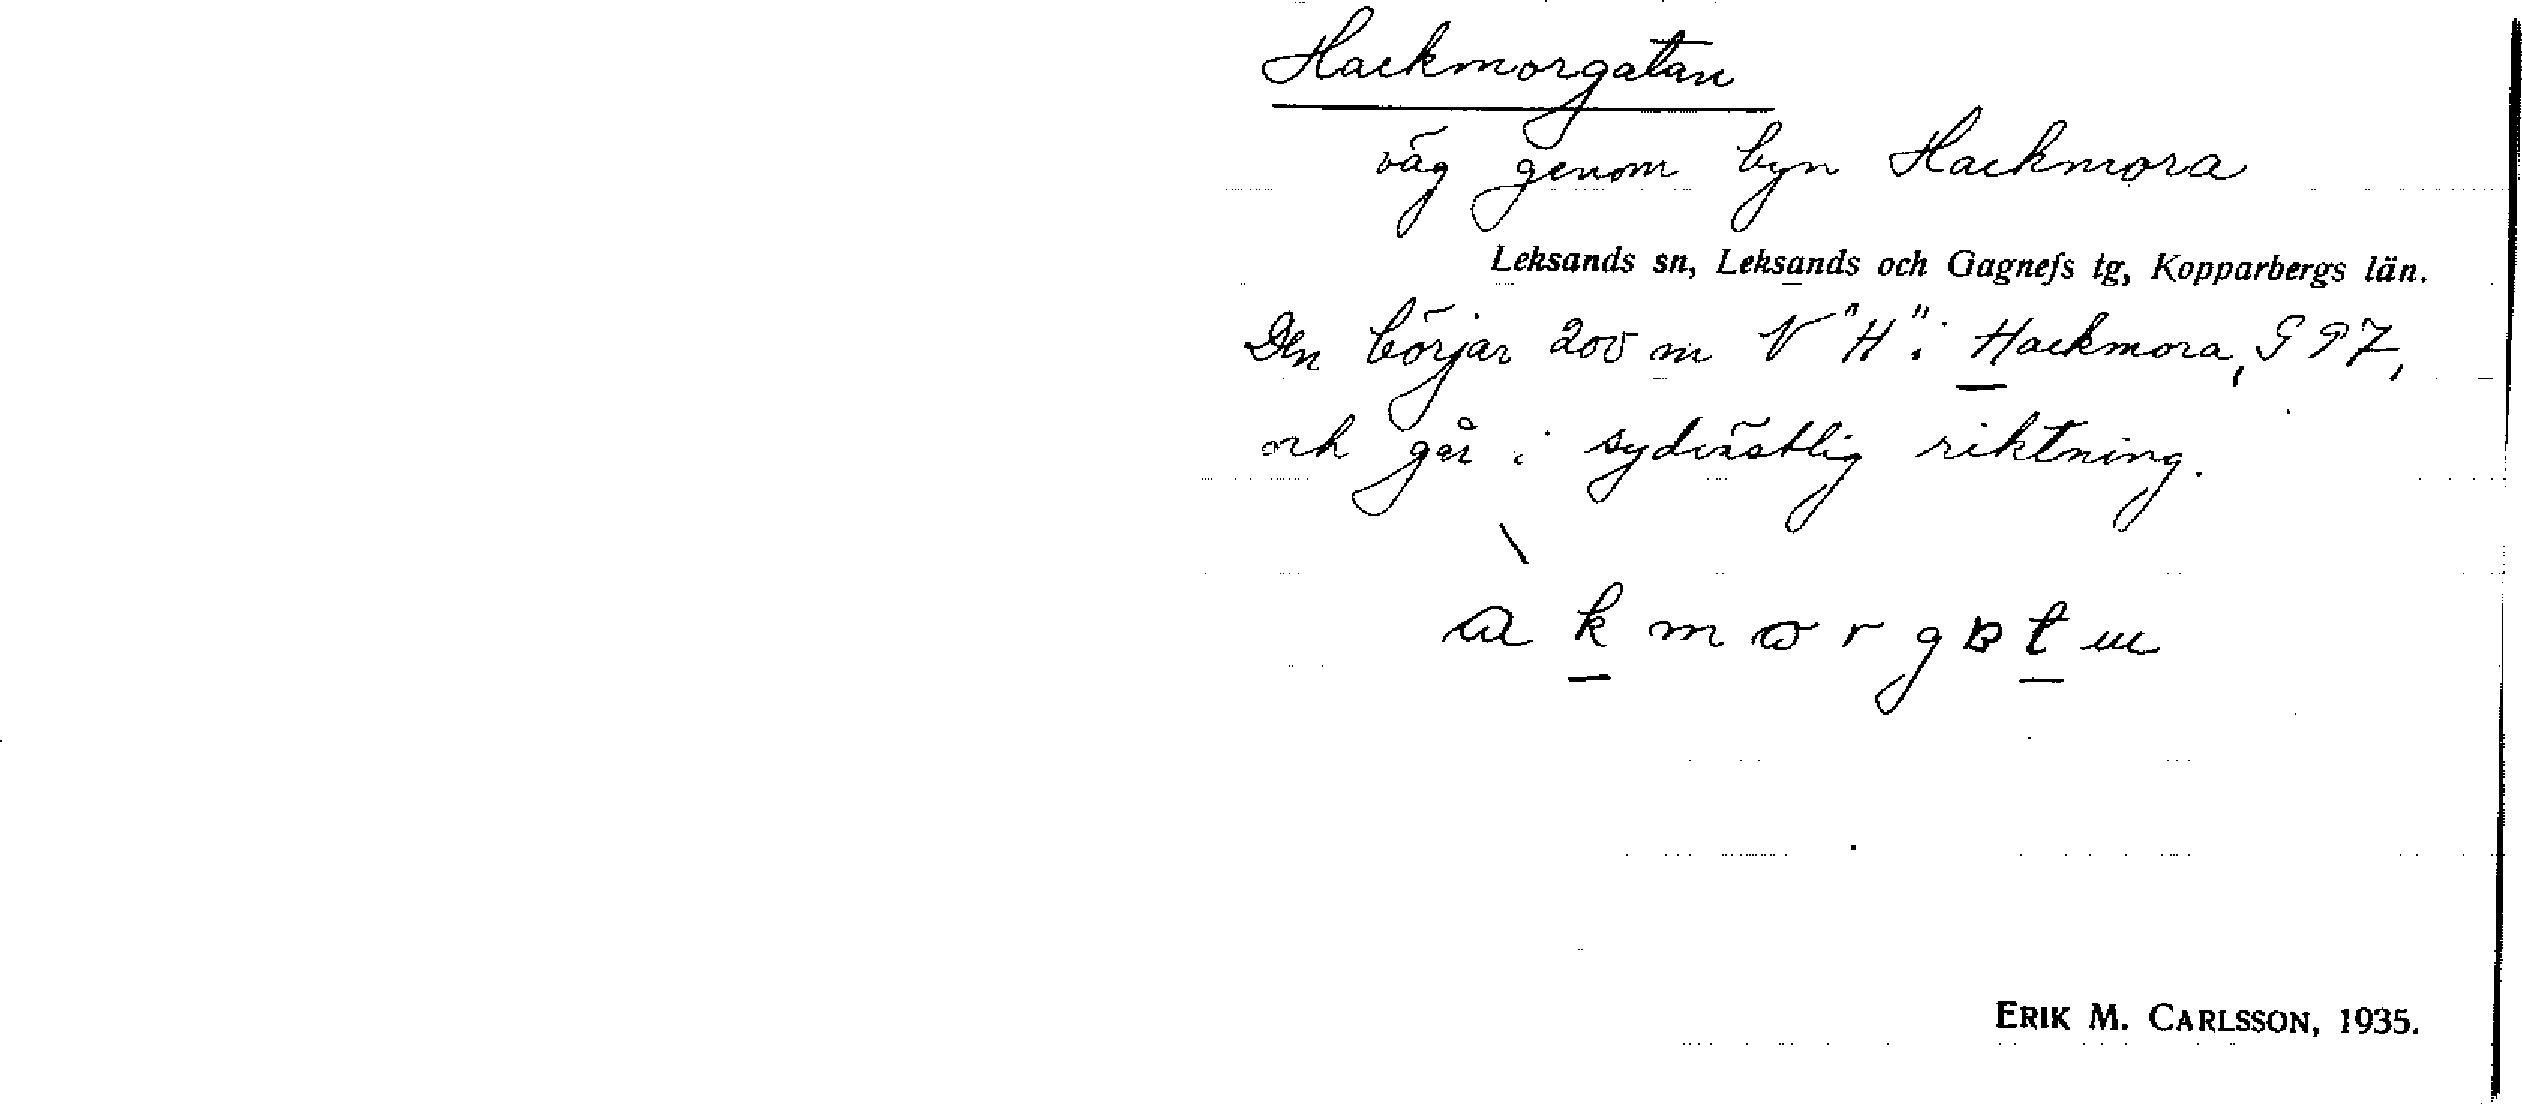 Hackmorgatan
väg genom byn Hackmora
Leksands sn, Leksands och Gagnefs tg, Kopparbergs län.
Den börjar 200 m V "H" i Hackmora,
och går i sydvästlig riktning.
ERIK M. CARLSSON, 1935.